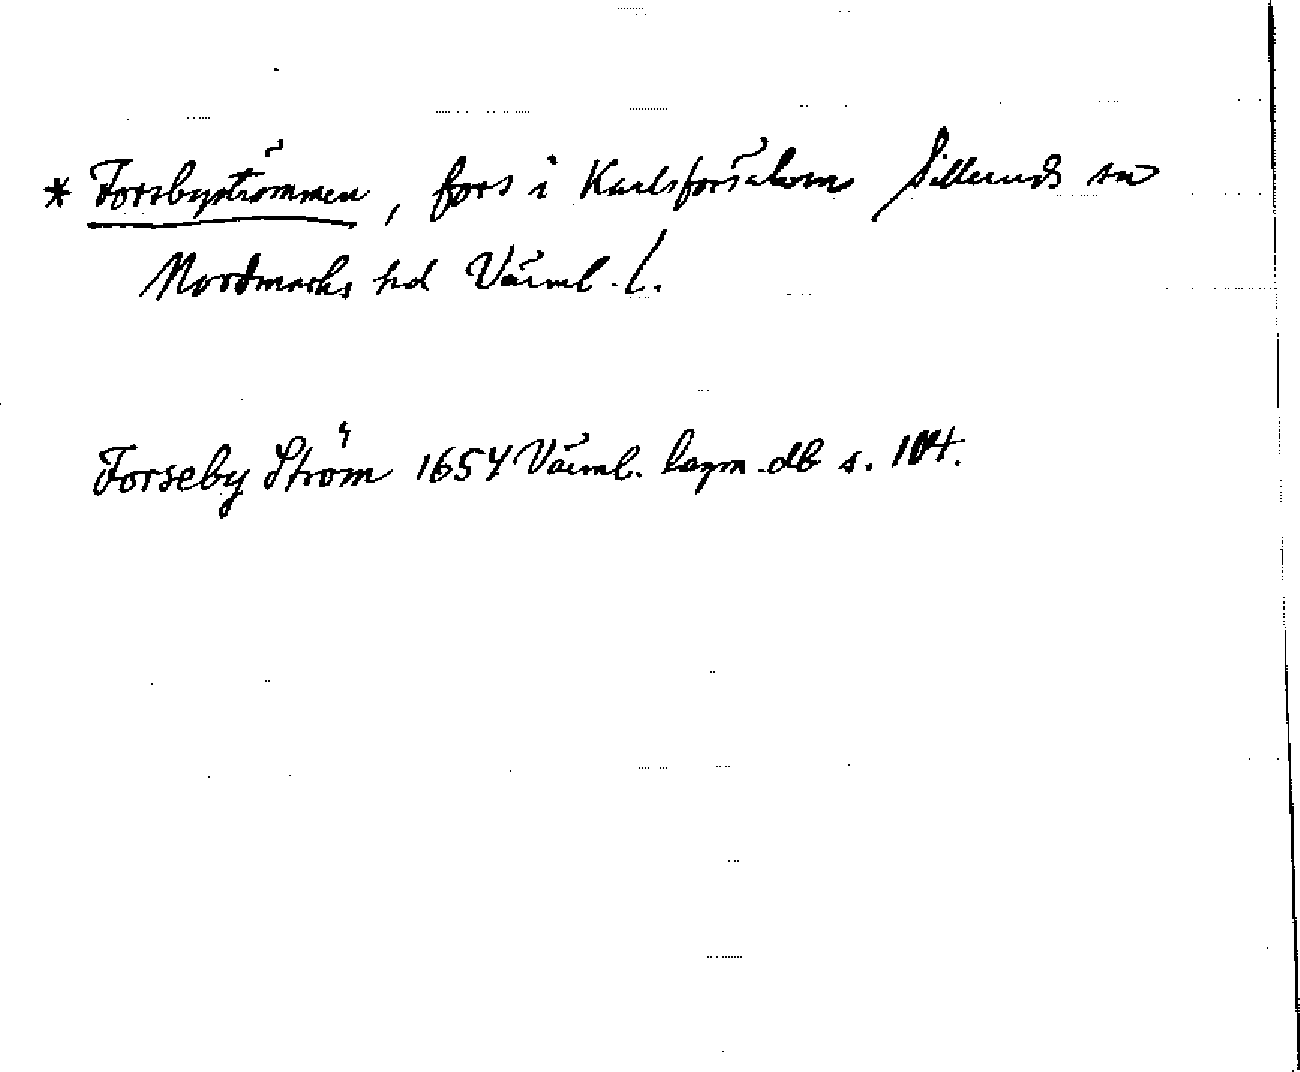 * Forsbyströmmen, fors i Karlsforsälven Silleruds sn
Nordmarks hd Värml. l.
Forseby Ström 1654 Värml. lagm. db s. 104.